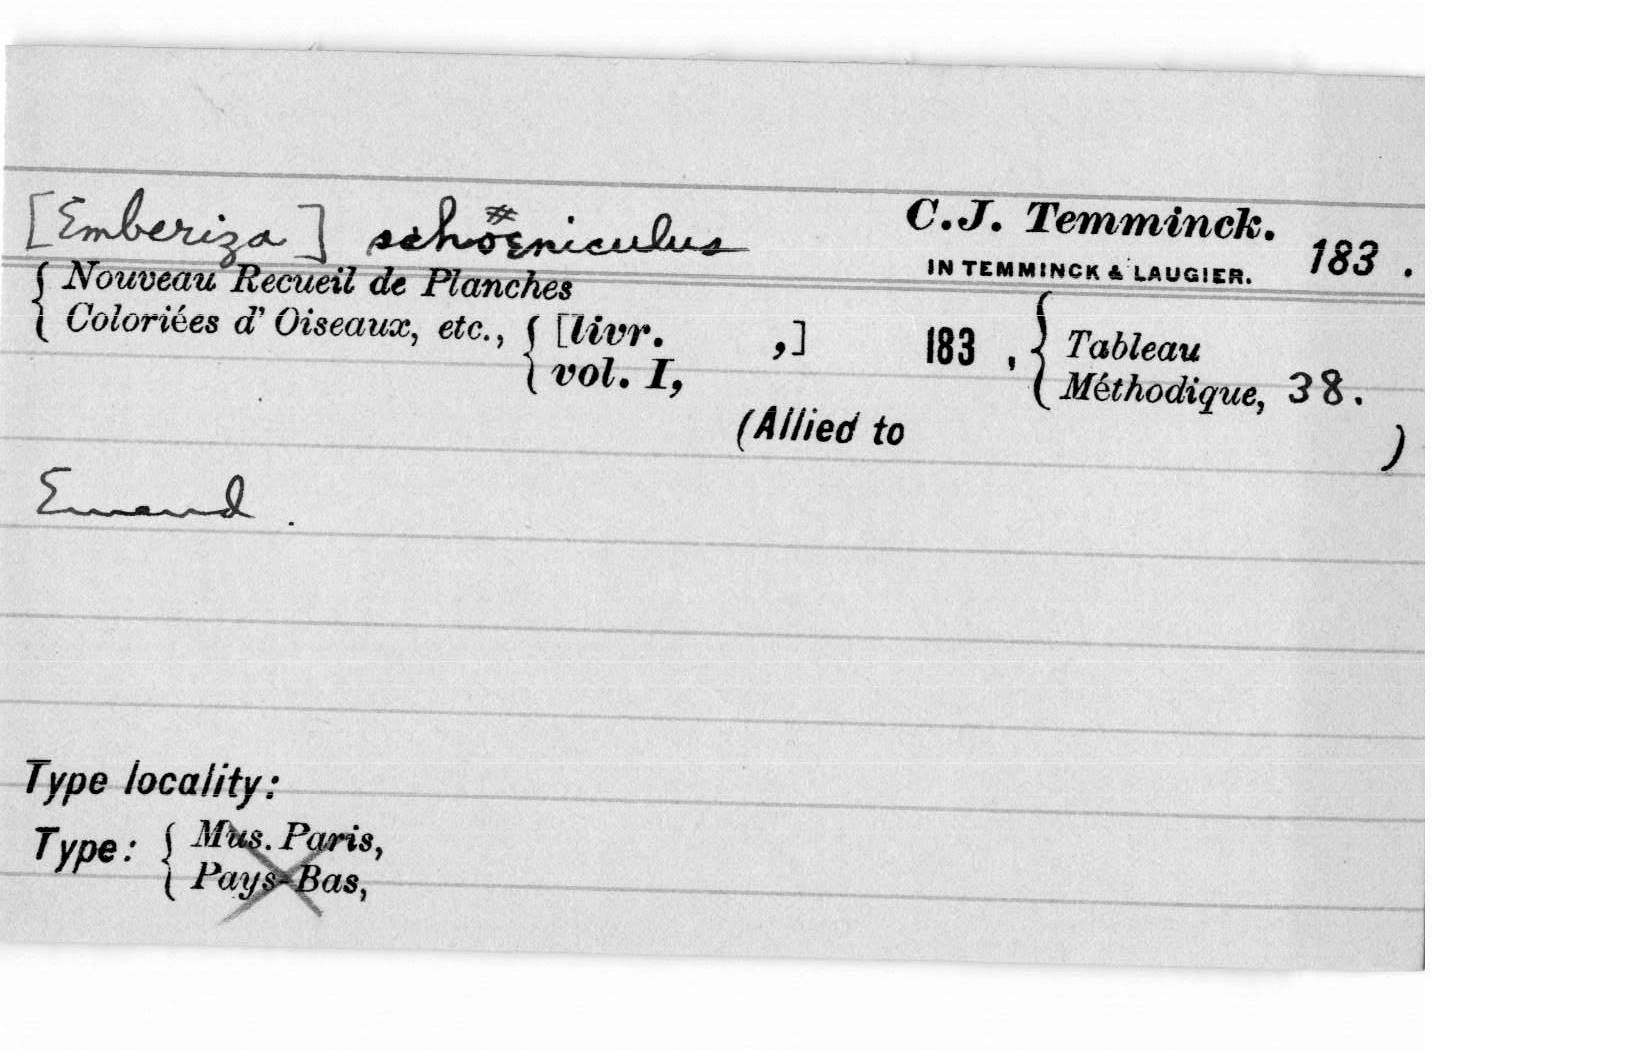 [Emberiza] schoeniculus C.J. Temminck.
IN TEMMINCK & LAUGIER. 183 .
{ Nouveau Recueil de Planches
Coloriées d' Oiseaux, etc., { [livr. ,] 183 , { Tableau
vol. I, Méthodique, 38.
(Allied to )
Emend.
Type locality:
Type: { Mus. Paris,
Pays-Bas,